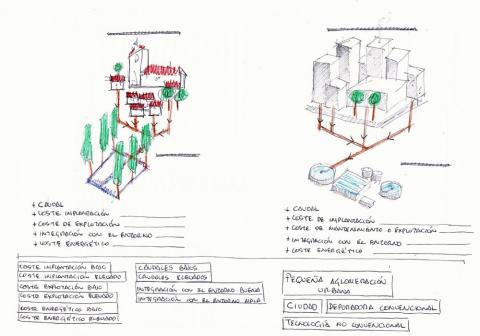 + CAUDAL
+ COSTE IMPLANTACIÓN
+ COSTE DE EXPLOTACIÓN
+ INTEGRACIÓN CON EL ENTORNO
+ COSTE ENERGÉTICO
+ CAUDAL
+ COSTE DE IMPLANTACIÓN
+ COSTE DE MANTENIMIENTO O EXPLOTACIÓN
+ INTEGRACIÓN CON EL ENTORNO
+ COSTE ENERGÉTICO
COSTE IMPLANTACIÓN BAJO
COSTE IMPLANTACIÓN ELEVADO
COSTE EXPLOTACIÓN BAJO
COSTE EXPLOTACIÓN ELEVADO
COSTE ENERGÉTICO BAJO
COSTE ENERGÉTICO ELEVADO
CAUDALES BAJOS
CAUDALES ELEVADOS
INTEGRACIÓN CON EL ENTORNO BUENA
INTEGRACIÓN CON EL ENTORNO MALA
PEQUEÑA AGLOMERACIÓN
URBANA
CIUDAD
DEPURADORA CONVENCIONAL
TECNOLOGÍA NO CONVENCIONAL